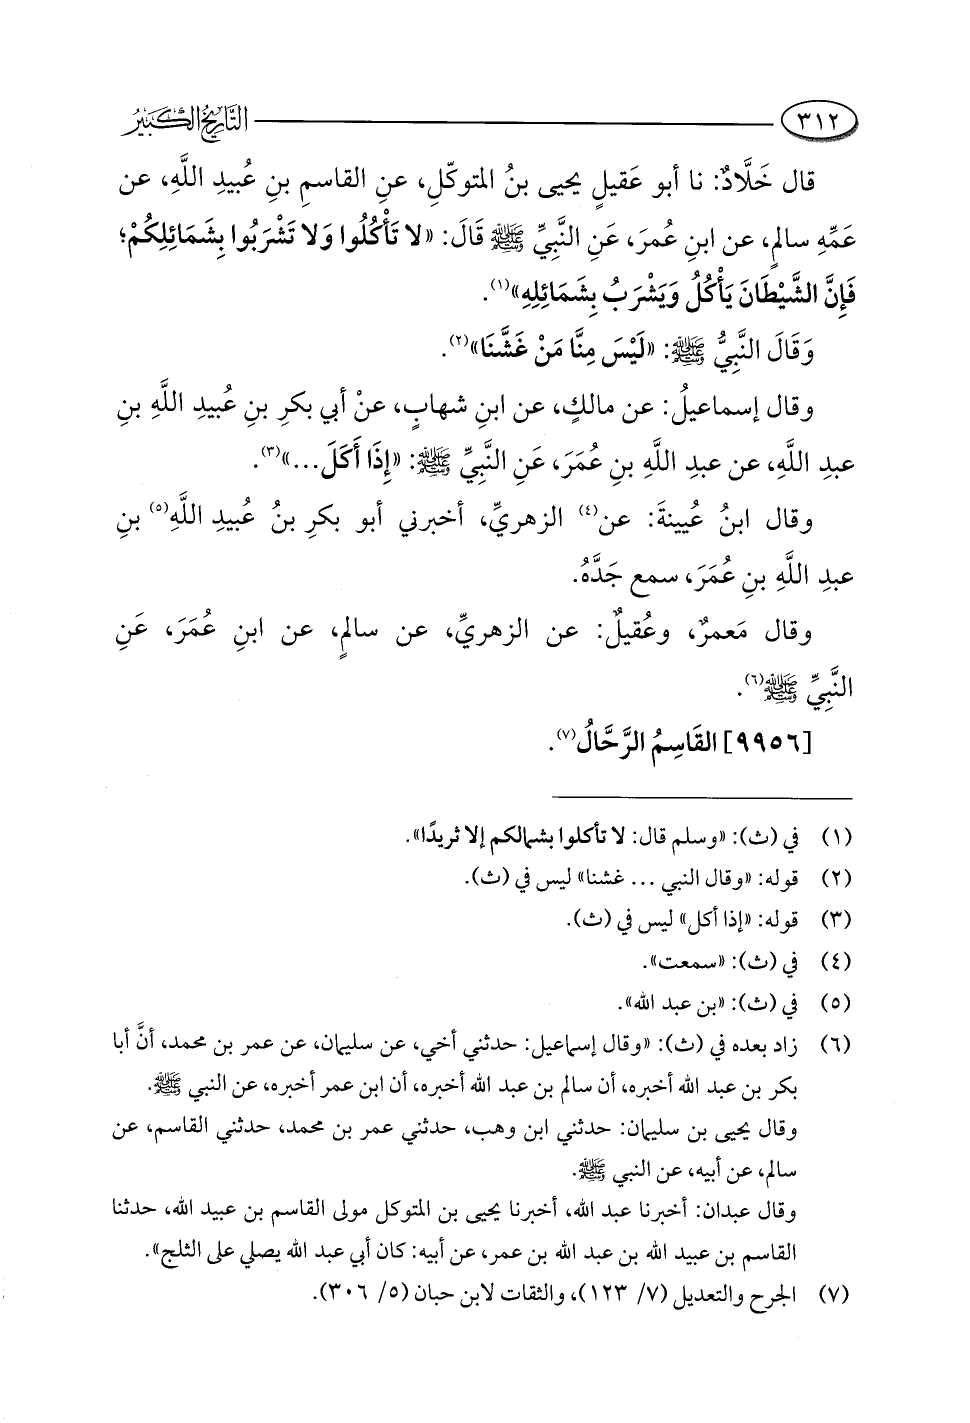 ٣١٢ التَّارِيخُ الكَبِيرُ
قال خَلَّادٌ: نا أبو عَقيلٍ يحيى بنُ المتوكّلِ، عنِ القاسمِ بنِ عُبيدِ اللَّهِ، عن
عَمِّهِ سالمٍ، عن ابنِ عُمرَ، عَنِ النَّبِيِّ ﷺ قَالَ: «لا تَأْكُلُوا وَلا تَشْرَبُوا بِشَمَائِلِكُمْ؛
فَإِنَّ الشَّيْطَانَ يَأْكُلُ وَيَشْرَبُ بِشَمَائِلِهِ»(١).
وَقَالَ النَّبِيُّ ﷺ: «لَيْسَ مِنَّا مَنْ غَشَّنَا»(٢).
وقال إسماعيلُ: عن مالكٍ، عن ابنِ شهابٍ، عنْ أبي بكرِ بنِ عُبيدِ اللَّهِ بنِ
عبدِ اللَّهِ، عن عبدِ اللَّهِ بنِ عُمَرَ، عَنِ النَّبِيِّ ﷺ: «إِذَا أَكَلَ...»(٣).
وقال ابنُ عُيينةَ: عن(٤) الزهريِّ، أخبرني أبو بكرِ بنُ عُبيدِ اللَّهِ(٥) بنِ
عبدِ اللَّهِ بنِ عُمَرَ، سمع جَدَّهُ.
وقال مَعمرٌ، وعُقيلٌ: عن الزهريِّ، عن سالمٍ، عن ابنِ عُمَرَ، عَنِ
النَّبِيِّ ﷺ(٦).
[٩٩٥٦] القَاسِمُ الرَّحَّالُ(٧).
(١) في (ث): «وسلم قال: لا تأكلوا بشمالكم إلا ثريدًا».
(٢) قوله: «وقال النبي ... غشنا» ليس في (ث).
(٣) قوله: «إذا أكل» ليس في (ث).
(٤) في (ث): «سمعت».
(٥) في (ث): «بن عبد الله».
(٦) زاد بعده في (ث): «وقال إسماعيل: حدثني أخي، عن سليمان، عن عمر بن محمد، أنَّ أبا
بكر بن عبد الله أخبره، أن سالم بن عبد الله أخبره، أن ابن عمر أخبره، عن النبي ﷺ.
وقال يحيى بن سليمان: حدثني ابن وهب، حدثني عمر بن محمد، حدثني القاسم، عن
سالم، عن أبيه، عن النبي ﷺ.
وقال عبدان: أخبرنا عبد الله، أخبرنا يحيى بن المتوكل مولى القاسم بن عبيد الله، حدثنا
القاسم بن عبيد الله بن عبد الله بن عمر، عن أبيه: كان أبي عبد الله يصلي على الثلج».
(٧) الجرح والتعديل (٧/ ١٢٣)، والثقات لابن حبان (٥/ ٣٠٦).